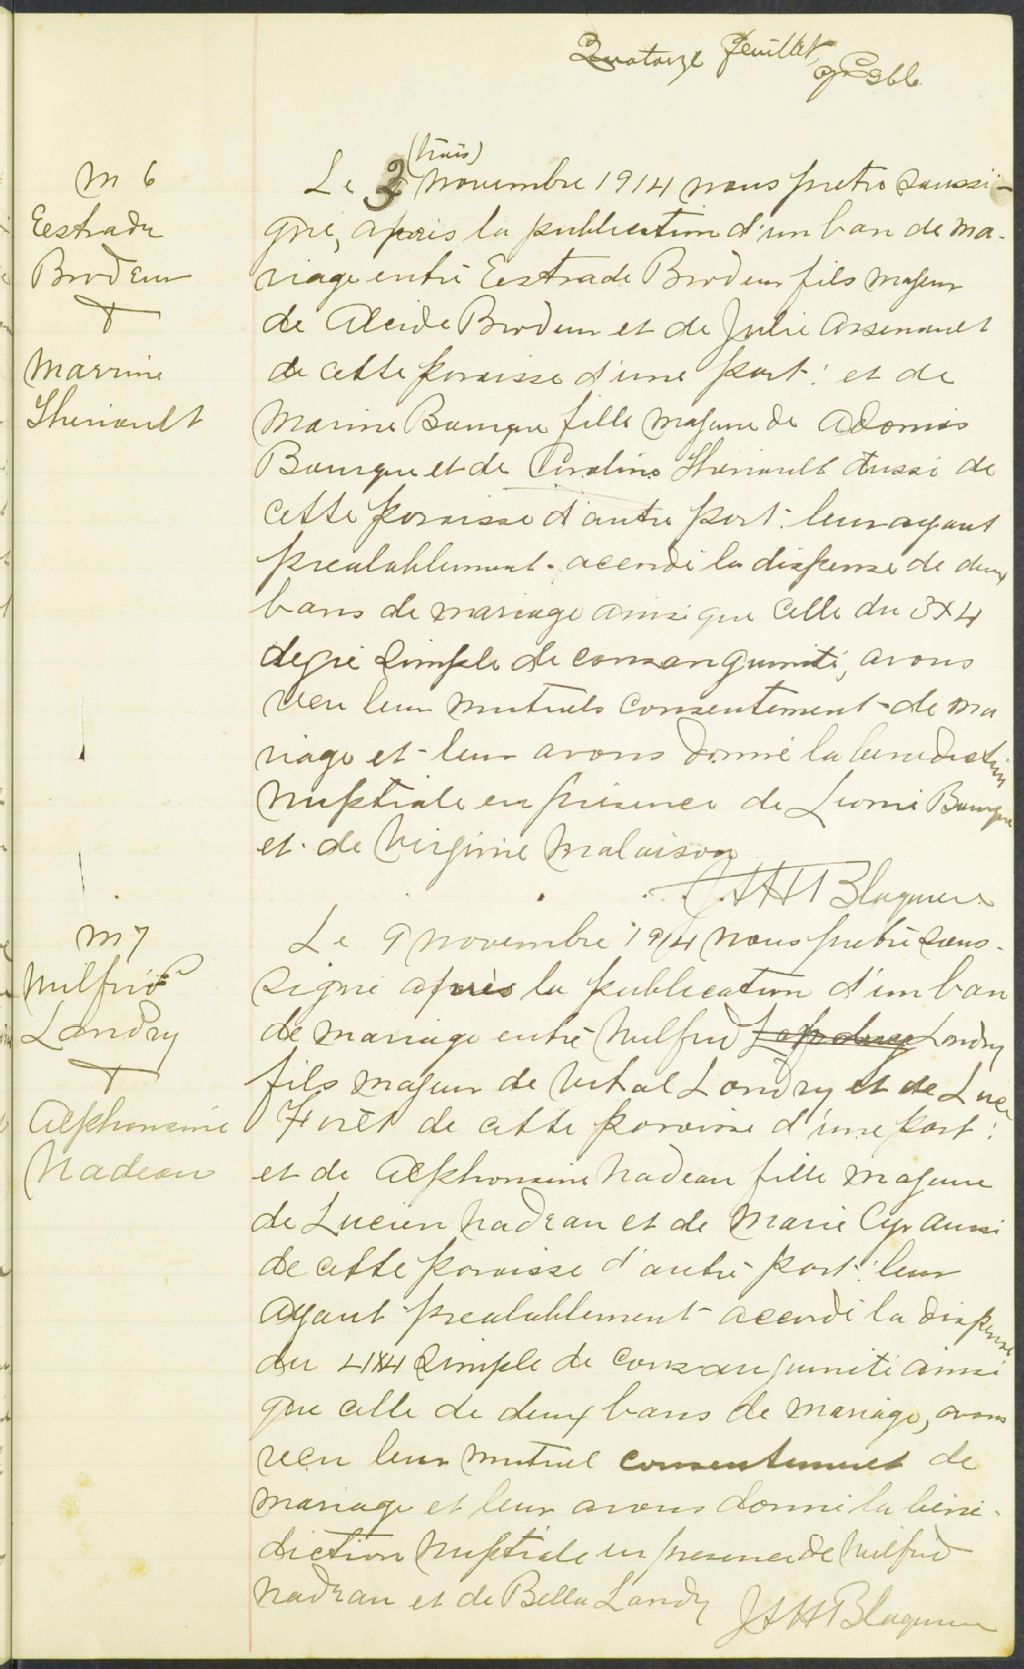 Quatorze feuillet
M 6
Eestrade
Brodeur
+
Marrine
Theriault
(trois)
Le 3 novembre 1914 nous pretre soussi-
gné, après la publication d'un ban de ma-
riage entre Eestrade Brodeur fils majeur
de Alcide Brodeur et de Julie Arsenault
de cette paroisse d'une part: et de
Marine Bourque fille majeure de Adonias
Bourque et de Caroline Theriault aussi de
cette paroisse d'autre part: leur ayant
prealablement accordé la dispense de deux
bans de mariage ainsi que celle du 3x4
degré simple de consanguinité, avons
reçu leur mutuels consentement de ma
riage et leur avons donné la benediction
nuptiale en présence de Leonie Bourque
et de Virginie Malaison
J A H T Blaquiere
M 7
Wilfrid
Landry
+
Alphonsine
Nadeau
Le 9 novembre 1914 nous pretre sous-
signé après la publication d'un ban
de mariage entre Wilfrid Landry
fils majeur de Vital Landry et de Luce
Forêt de cette paroisse d'une part:
et de Alphonsine Nadeau fille majeure
de Lucien Nadeau et de Marie Cyr aussi
de cette paroisse d'autre part: leur
ayant prealablement accordé la dispense
du 4x4 simple de consanguinité ainsi
que celle de deux bans de mariage, avons
reçu leur mutuel consentement de
mariage et leur avons donné la béné-
diction nuptiale en presence de Wilfrid
Nadeau et de Bella Landry J A H T Blaquiere